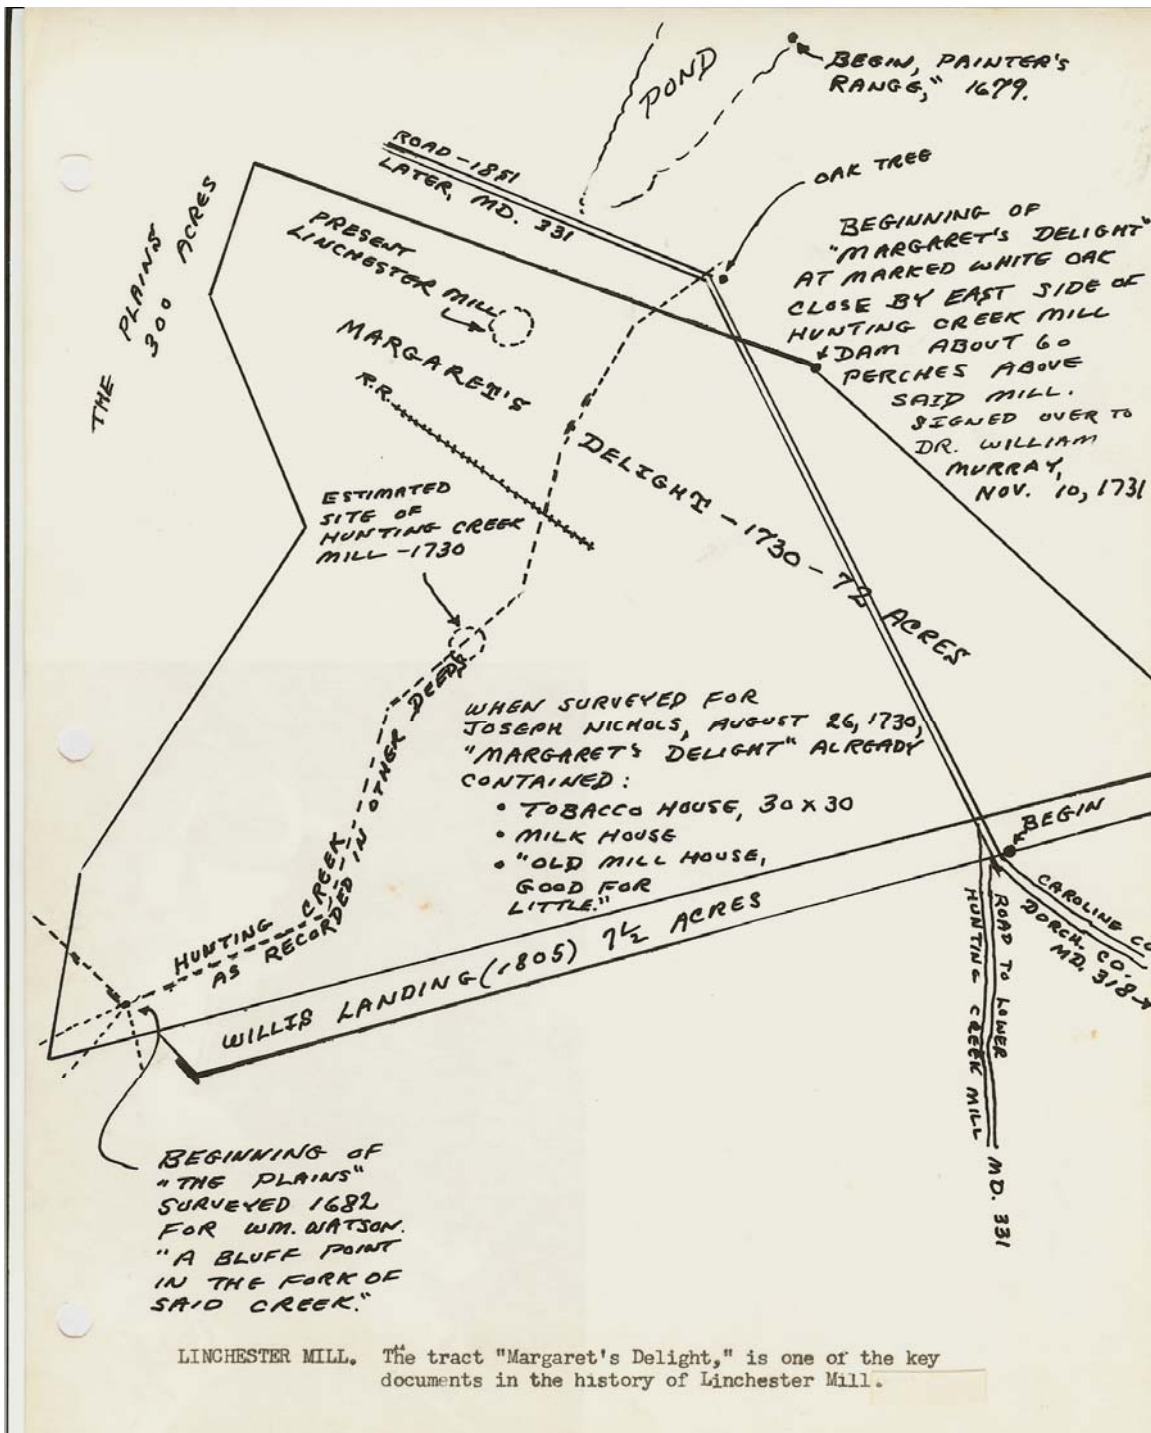 POND
BEGIN, PAINTER'S
RANGE," 1679.
ROAD-1851
LATER, MD. 331
OAK TREE
THE PLAINS
300 ACRES
PRESENT
LINCHESTER MILL
BEGINNING OF
"MARGARET'S DELIGHT"
AT MARKED WHITE OAK
CLOSE BY EAST SIDE OF
HUNTING CREEK MILL
DAM ABOUT 60
PERCHES ABOVE
SAID MILL.
SIGNED OVER TO
DR. WILLIAM
MURRAY,
NOV. 10, 1731
MARGARET'S DELIGHT - 1730 - 72 ACRES
R.R.
ESTIMATED
SITE OF
HUNTING CREEK
MILL -1730
WHEN SURVEYED FOR
JOSEPH NICHOLS, AUGUST 26, 1730,
"MARGARET'S DELIGHT" ALREADY
CONTAINED:
• TOBACCO HOUSE, 30 x 30
• MILK HOUSE
• "OLD MILL HOUSE,
GOOD FOR
LITTLE."
HUNTING CREEK
AS RECORDED IN OTHER DEEDS
WILLIS LANDING (1805) 7½ ACRES
BEGIN
CAROLINE CO
DORCH. CO.
MD. 318→
ROAD TO LOWER
HUNTING CREEK MILL
MD. 331
BEGINNING OF
"THE PLAINS"
SURVEYED 1682
FOR WM. WATSON.
"A BLUFF POINT
IN THE FORK OF
SAID CREEK."
LINCHESTER MILL. The tract "Margaret's Delight," is one of the key
documents in the history of Linchester Mill.